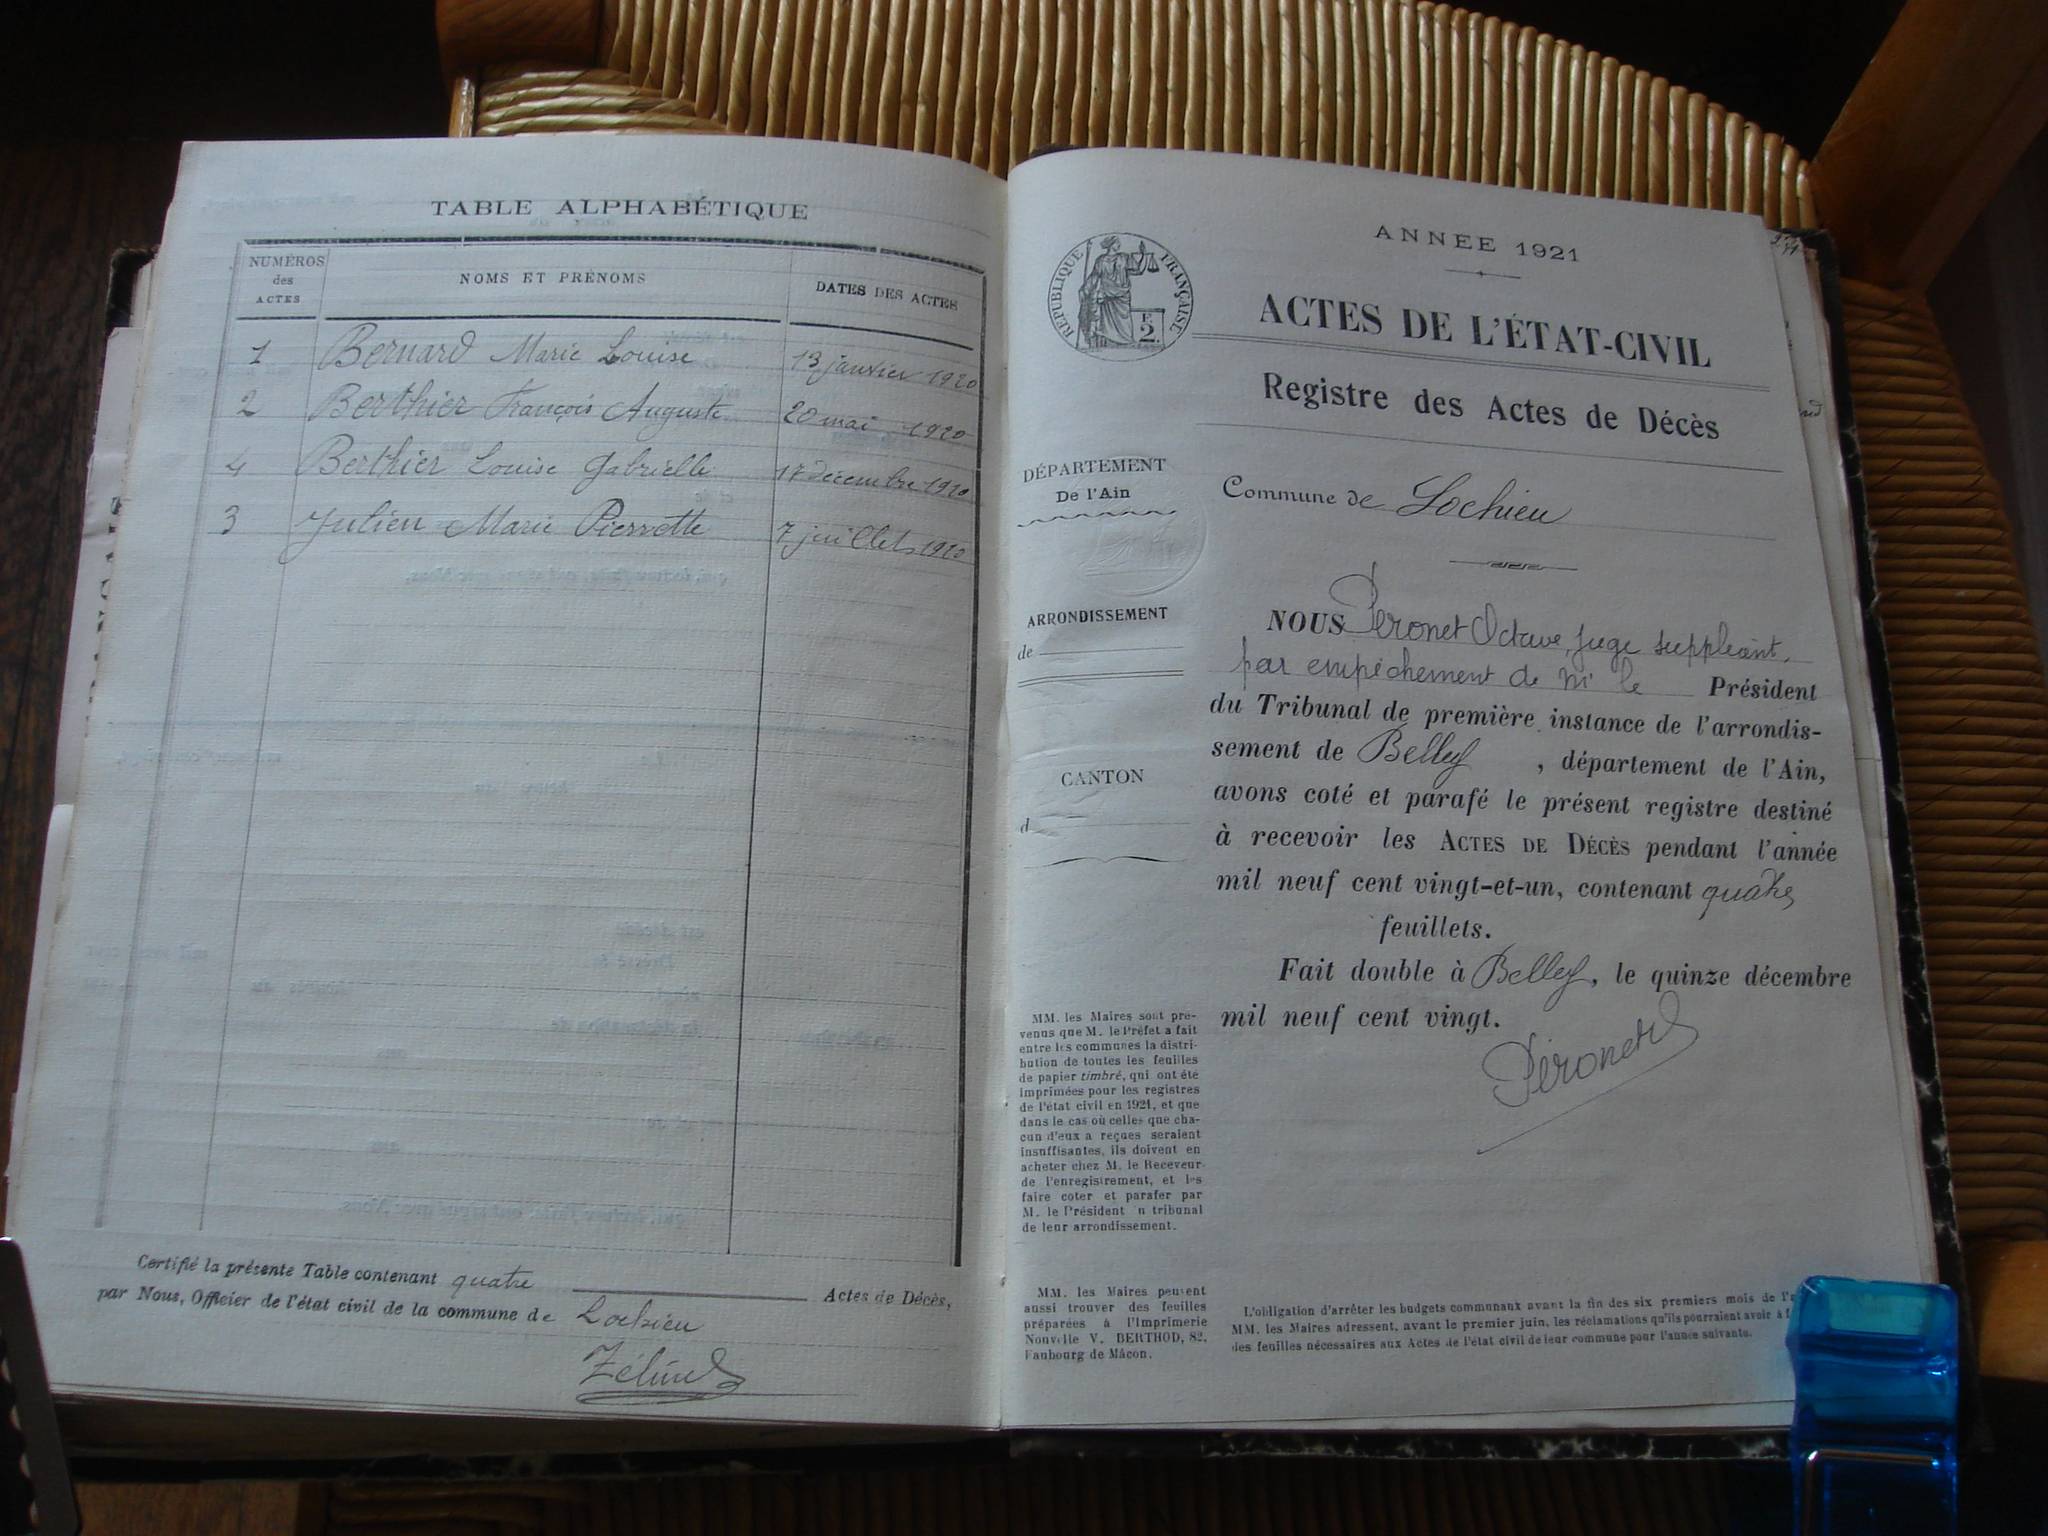 TABLE ALPHABÉTIQUE
NUMÉROS
des
ACTES
NOMS ET PRÉNOMS
DATES DES ACTES
1 Bernard Marie Louise 13 janvier 1920
2 Berthier François Auguste 20 mai 1920
4 Berthier Louise Gabrielle 17 décembre 1920
3 Julien Marie Pierrette 7 juillet 1920
Certifié la présente Table contenant quatre Actes de Décès,
par Nous, Officier de l'état civil de la commune de Lochieu
ANNÉE 1921
RÉPUBLIQUE FRANÇAISE
F
2.
ACTES DE L'ÉTAT-CIVIL
Registre des Actes de Décès
DÉPARTEMENT
De l'Ain
Commune de Lochieu
ARRONDISSEMENT
de
CANTON
d
NOUS Péronet Octave, juge suppléant,
par empêchement de Mr le Président
du Tribunal de première instance de l'arrondis-
sement de Belley, département de l'Ain,
avons coté et parafé le présent registre destiné
à recevoir les ACTES DE DÉCÈS pendant l'année
mil neuf cent vingt-et-un, contenant quatre
feuillets.
Fait double à Belley, le quinze décembre
mil neuf cent vingt.
Péronet
MM. les Maires sont pré-
venus que M. le Préfet a fait
entre les communes la distri-
bution de toutes les feuilles
de papier timbré, qui ont été
imprimées pour les registres
de l'état civil en 1921, et que
dans le cas où celles que cha-
cun d'eux a reçues seraient
insuffisantes, ils doivent en
acheter chez M. le Receveur
de l'enregistrement, et les
faire coter et parafer par
M. le Président n tribunal
de leur arrondissement.
MM. les Maires peuvent
aussi trouver des feuilles
préparées à l'Imprimerie
Nouvelle V. BERTHOD, 82,
Faubourg de Mâcon.
L'obligation d'arrêter les budgets communaux avant la fin des six premiers mois de
MM. les Maires adressent, avant le premier juin, les réclamations qu'ils pourraient avoir à
des feuilles nécessaires aux Actes de l'état civil de leur commune pour l'année suivante.